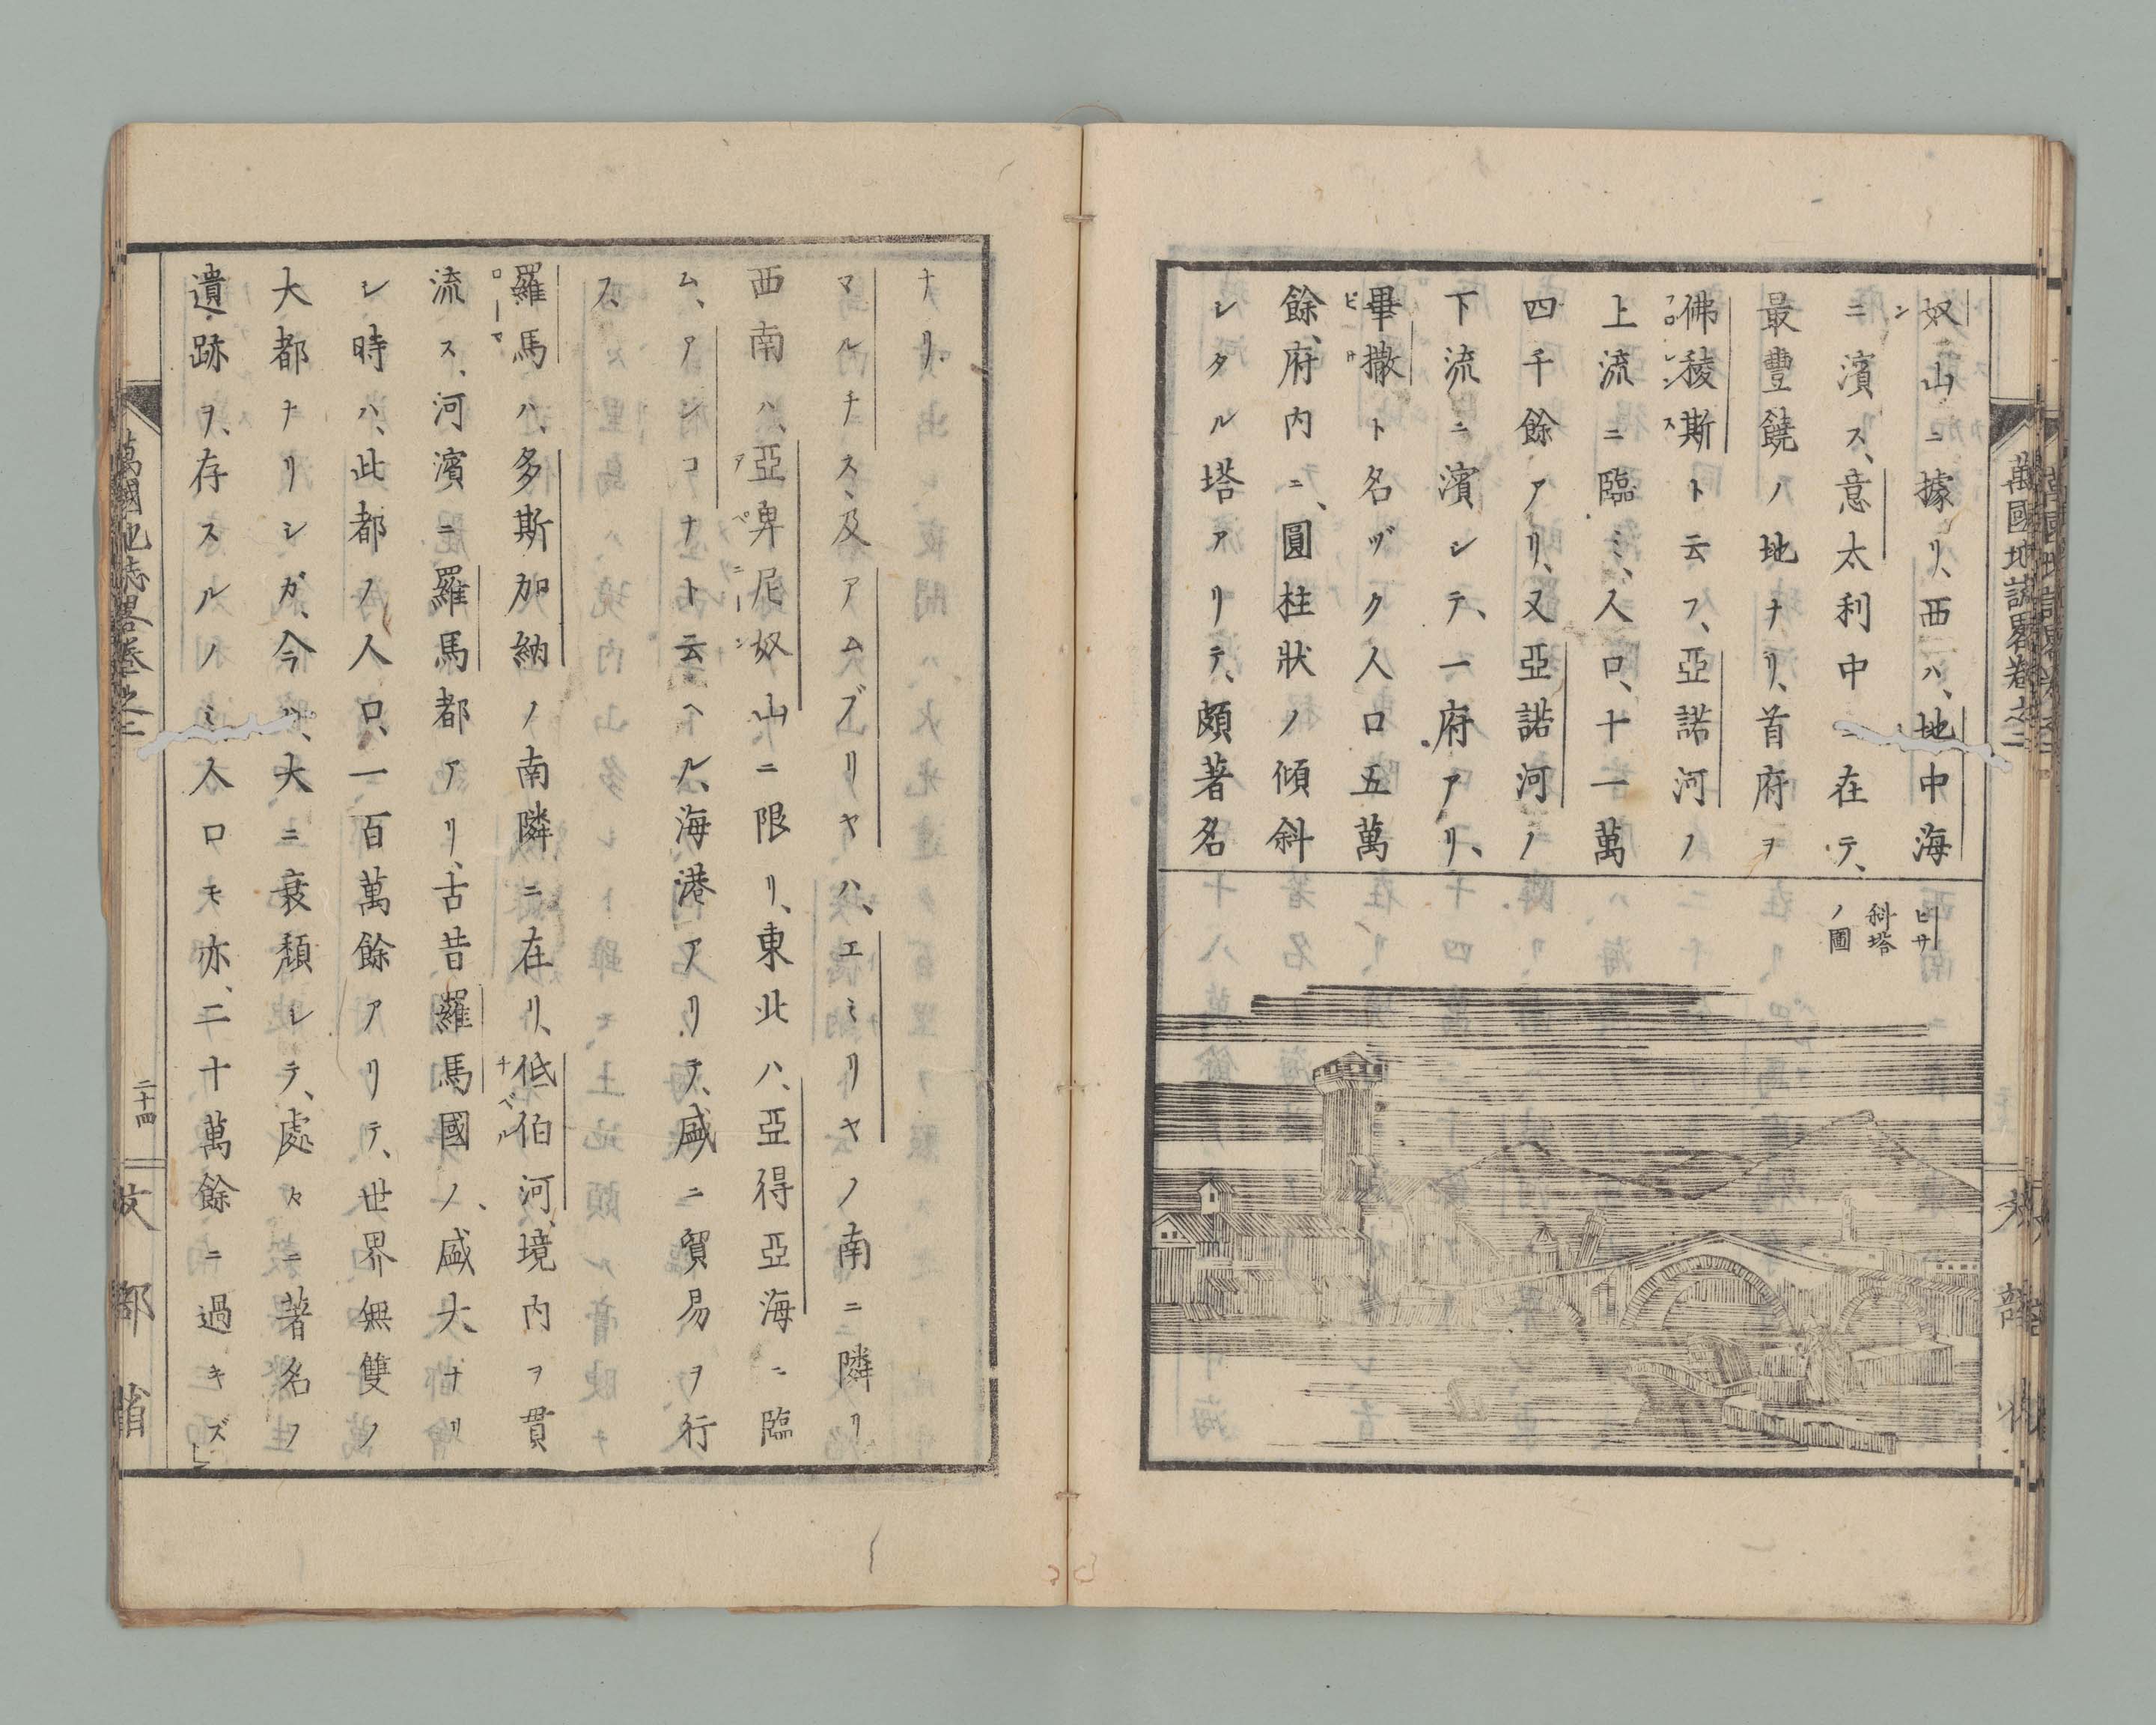 奴山ニ據リ、西ハ、地中海
ン
ニ濱ス、意太利中ニ在テ、
最豐饒ノ地ナリ、首府ヲ
佛稜斯ト云フ、亞諾河ノ
フロレンス
上流ニ臨ミ、人口、十一萬
四千餘アリ、又亞諾河ノ
下流ニ濱シテ、一府アリ、
畢撒ト名ヅク人口五萬
ビーサ
餘、府内ニ、圓柱狀ノ傾斜
シタル塔アリテ、頗著名
ビサ
斜塔
ノ圖
ナリ、
マルチス、及アムブリヤハ、エミリヤノ南ニ隣リ
西南ハ、亞卑尼奴山ニ限リ、東北ハ、亞得亞海ニ臨
アペニーン
ム、アンコナト云ヘル、海港アリテ、盛ニ貿易ヲ行
フ、
羅馬ハ、多斯加納ノ南隣ニ在リ、低伯河、境内ヲ貫
ローマ
チベル
流ス、河濱ニ羅馬都アリ、古昔羅馬國ノ、盛大ナリ
シ時ハ、此都ノ人口、一百萬餘アリテ、世界無雙ノ
大都ナリシガ、今ハ、大ニ衰頽シテ、處々ニ著名ノ
遺跡ヲ、存スルノミ人口モ亦、二十萬餘ニ過キズ
萬國地誌畧卷之二
二十四
文部省